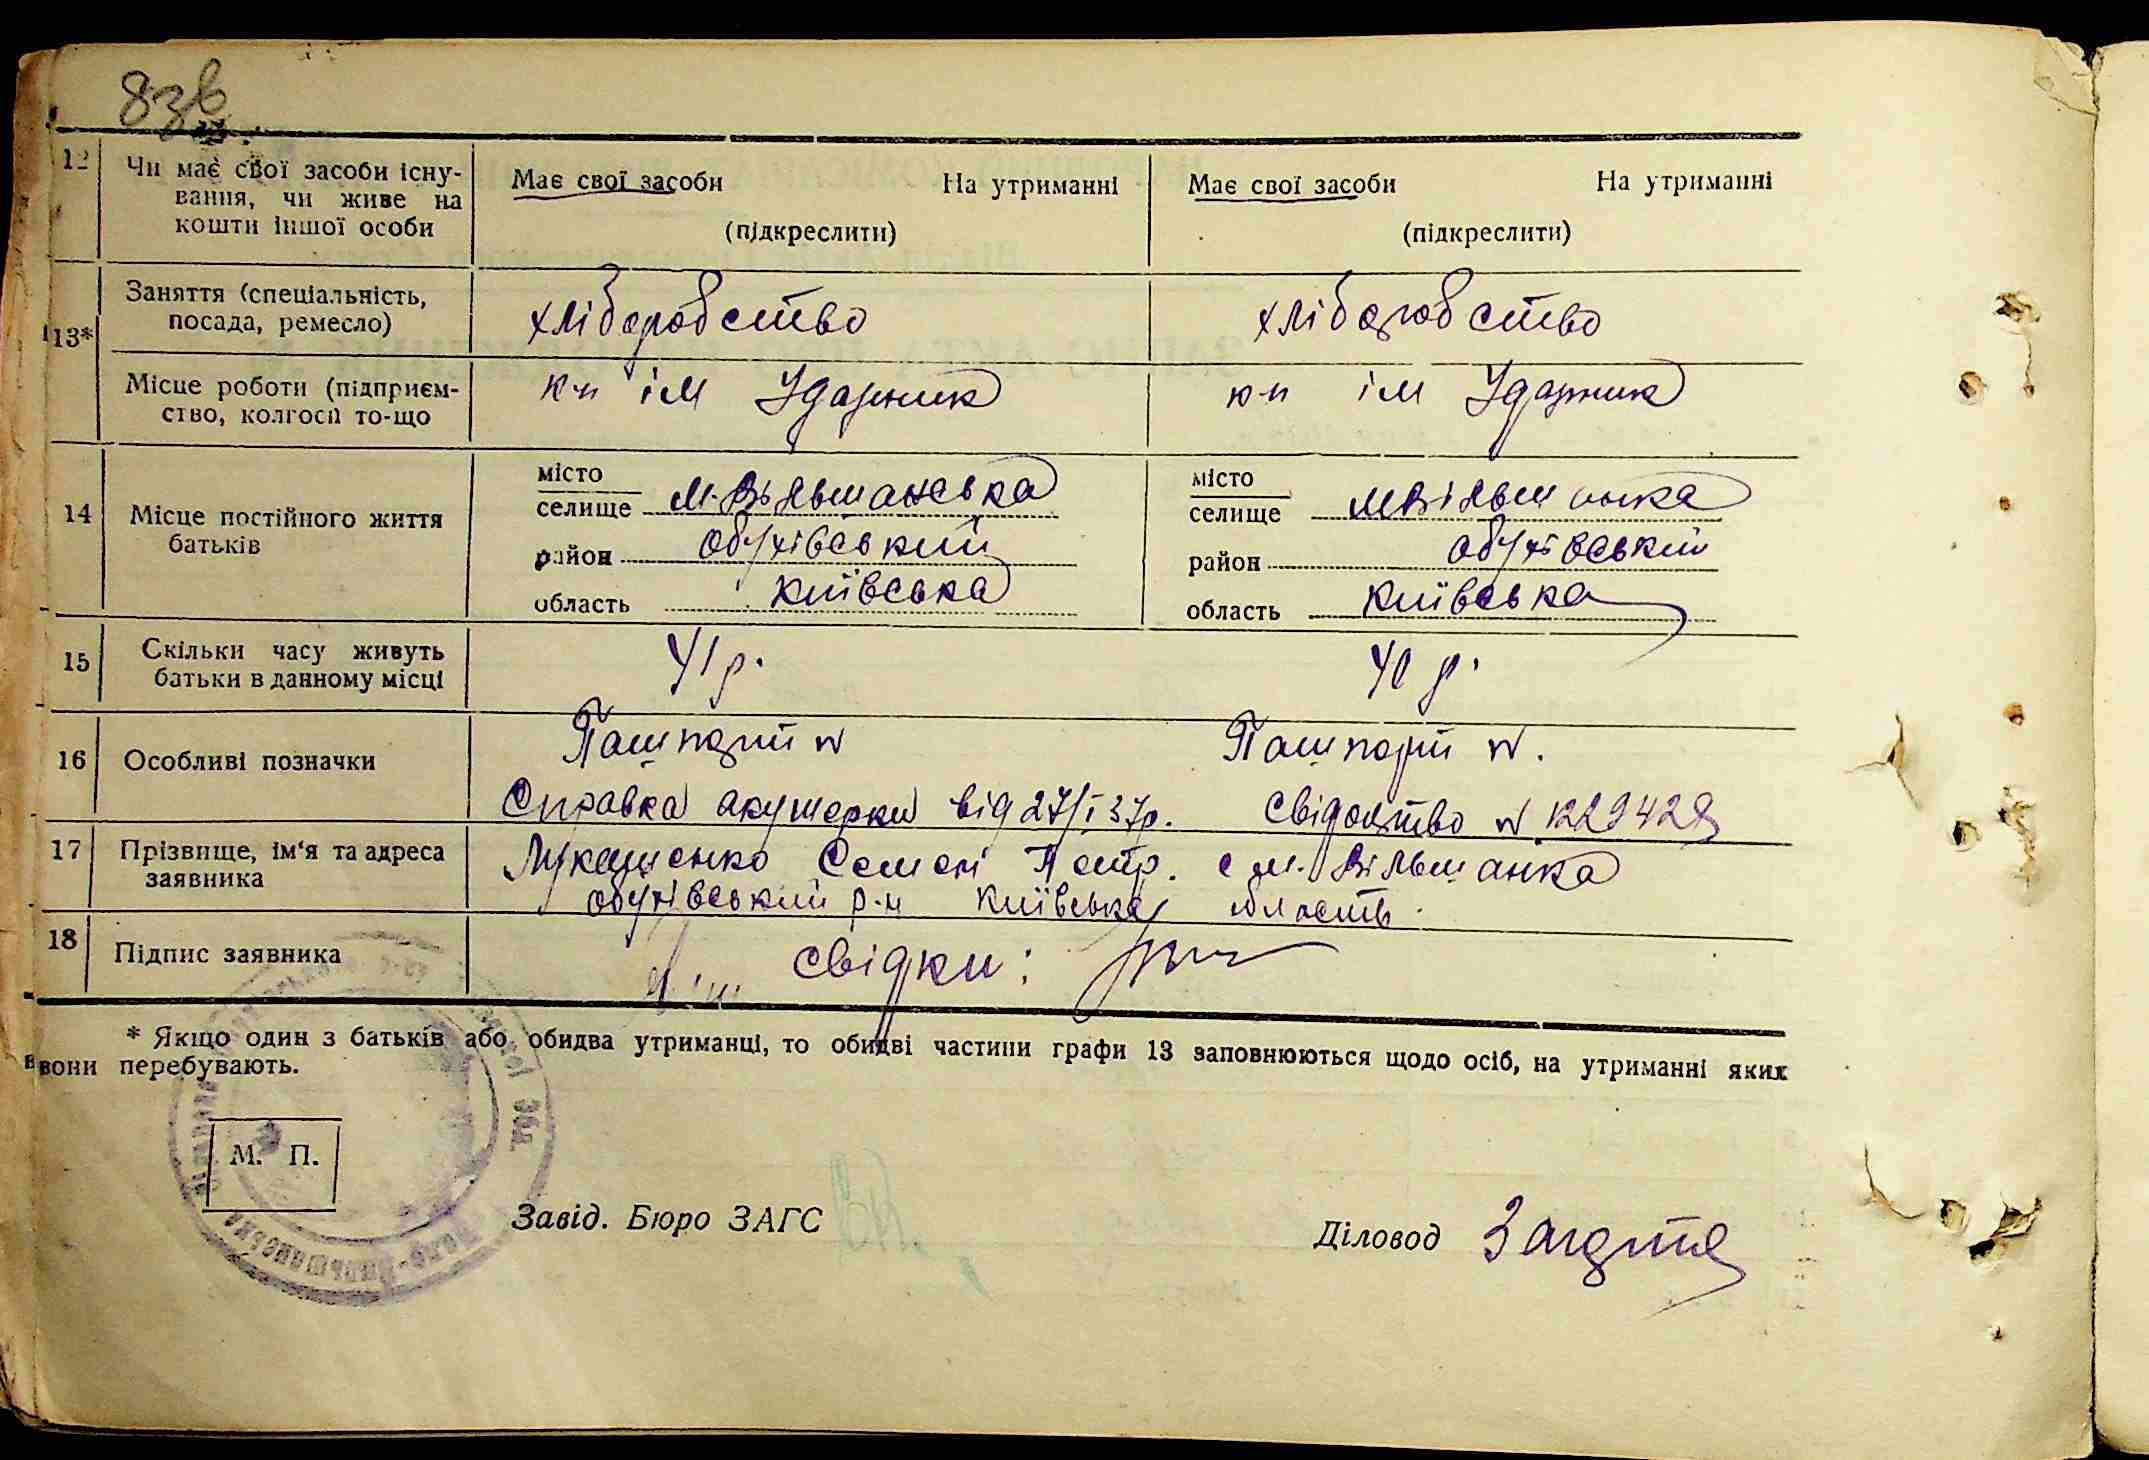 8зв
12 Чи має свої засоби існу-
вання, чи живе на
кошти іншої особи
Має свої засоби На утриманні
(підкреслити)
Має свої засоби На утриманні
(підкреслити)
13*
Заняття (спеціальність,
посада, ремесло)
хліборобство
хліборобство
Місце роботи (підприєм-
ство, колгосп то-що
к-п ім Ударник
к-п ім Ударник
14 Місце постійного життя
батьків
місто
селище М.Вільшанська
район обухівський
область київська
місто
селище МВільшанка
район обухівський
область київська
15 Скільки часу живуть
батьки в данному місці
41 р.
40 р.
16 Особливі позначки
Пашпорт N
Пашпорт N.
Справка акушерки від 27/І 37р. Свідоцтво N 1229428
17 Прізвище, ім'я та адреса
заявника
Лукашенко Семен Петр. с м. Вільшанка
обухівський р-н київська область
18 Підпис заявника
свідки:
* Якщо один з батьків або обидва утриманці, то обидві частини графи 13 заповнюються щодо осіб, на утриманні яких
вони перебувають.
М. П.
Завід. Бюро ЗАГС
Діловод